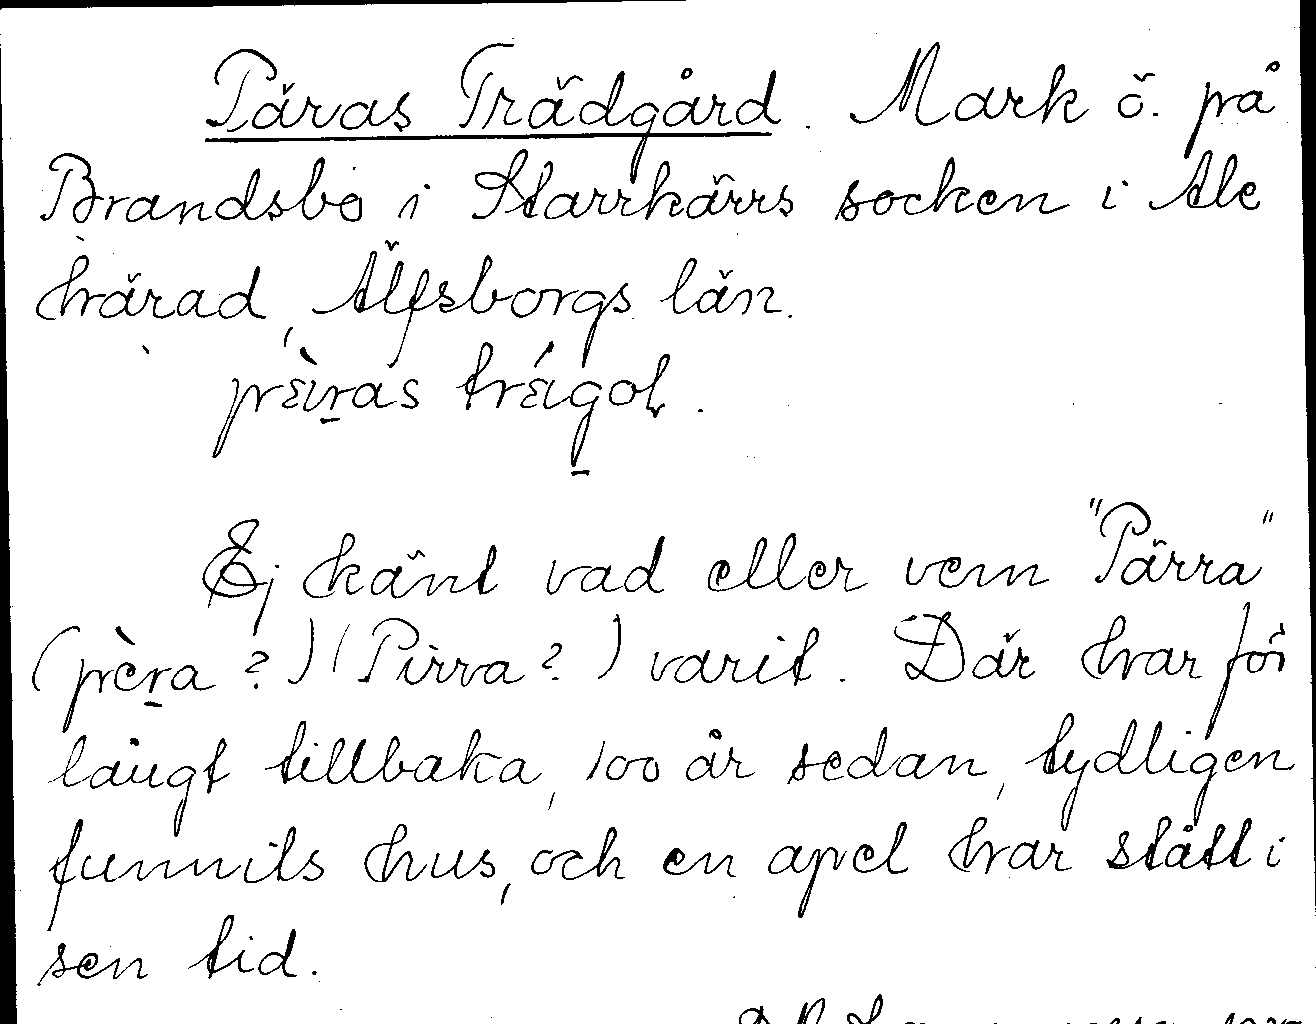 Päras Trädgård. Mark ö. på
Brandsbo i Starrkärrs socken i Ale
härad, Älfsborgs län.
prèiras tréigoḷ.
Ej känt vad eller vem "Pärra"
(prèra?) (Pirra?) varit. Där har för
långt tillbaka, 100 år sedan, tydligen
funnits hus, och en apel har stått i
sen tid.